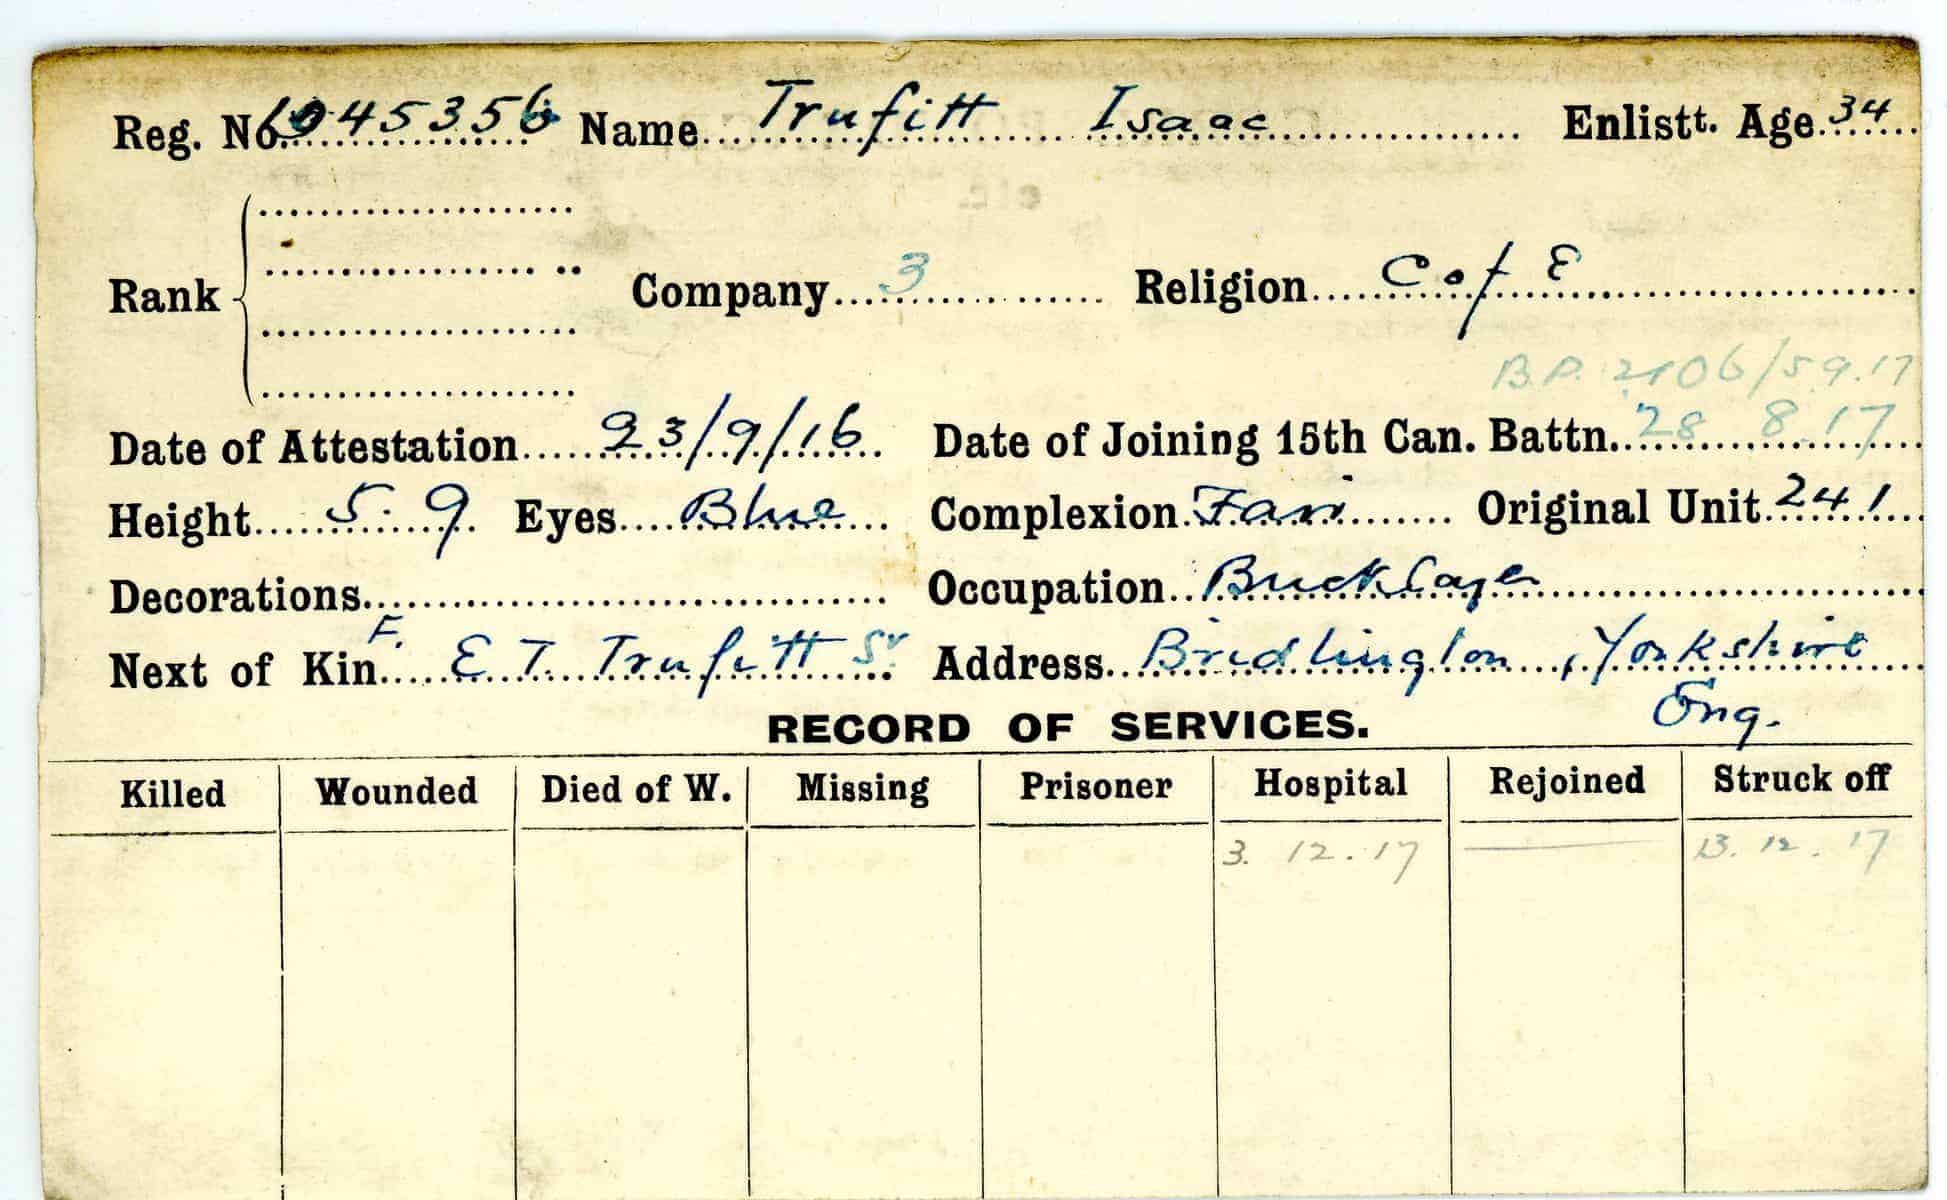 Reg. No. 1045356 Name Trufitt Isaac Enlistt. Age 34
Rank Company 3 Religion C of E
B.P. 2106/5 9.17
Date of Attestation 23/9/16 Date of Joining 15th Can. Battn. 28 8.17
Height 5. 9 Eyes Blue Complexion Fair Original Unit 241
Decorations Occupation Brick Layer
Next of Kin F. E T. Trufitt Sr Address Bridlington, Yorkshire
Eng.
RECORD OF SERVICES.
Killed Wounded Died of W. Missing Prisoner Hospital Rejoined Struck off
3. 12. 17 13. 12. 17